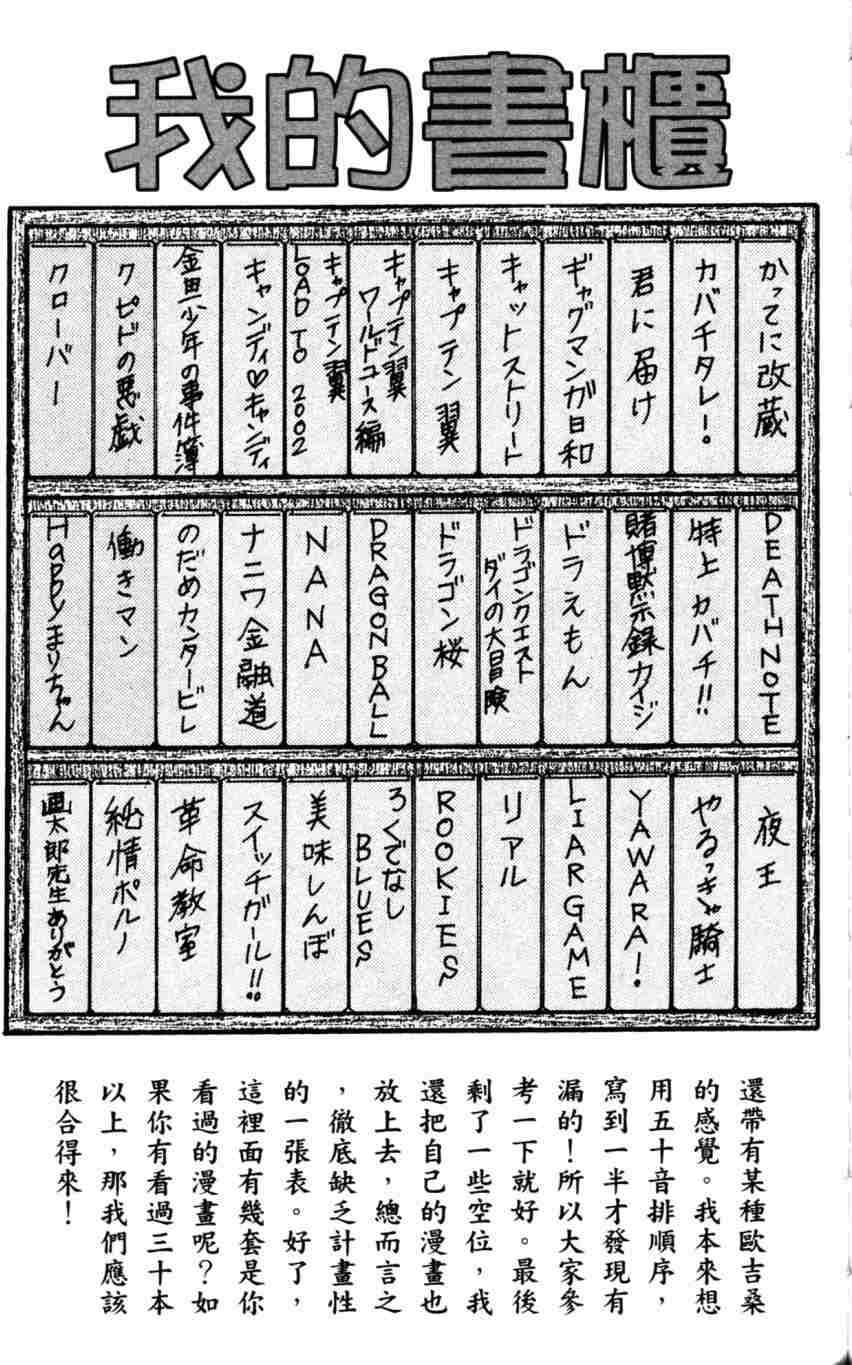 我的書櫃
かってに改蔵
カバチタレ!
君に届け
ギャグマンガ日和
キャットストリート
キャプテン翼
キャプテン翼
ワールドユース編
キャプテン翼
LOAD TO 2002
キャンディ♡キャンディ
金田一少年の事件簿
クピドの悪戯
クローバー
DEATH NOTE
特上カバチ!!
賭博黙示録カイジ
ドラえもん
ドラゴンクエスト
ダイの大冒険
ドラゴン桜
DRAGON BALL
NANA
ナニワ金融道
のだめカンタービレ
働きマン
Happyまりちゃん
夜王
やるっきゃ騎士
YAWARA!
LIAR GAME
リアル
ROOKIES
ろくでなし
BLUES
美味しんぼ
スイッチガール!!
革命教室
純情ポルノ
画太郎先生ありがとう
還帶有某種歐吉桑
的感覺。我本來想
用五十音排順序,
寫到一半才發現有
漏的!所以大家參
考一下就好。最後
剩了一些空位,我
還把自己的漫畫也
放上去,總而言之
,徹底缺乏計畫性
的一張表。好了,
這裡面有幾套是你
看過的漫畫呢?如
果你有看過三十本
以上,那我們應該
很合得來!